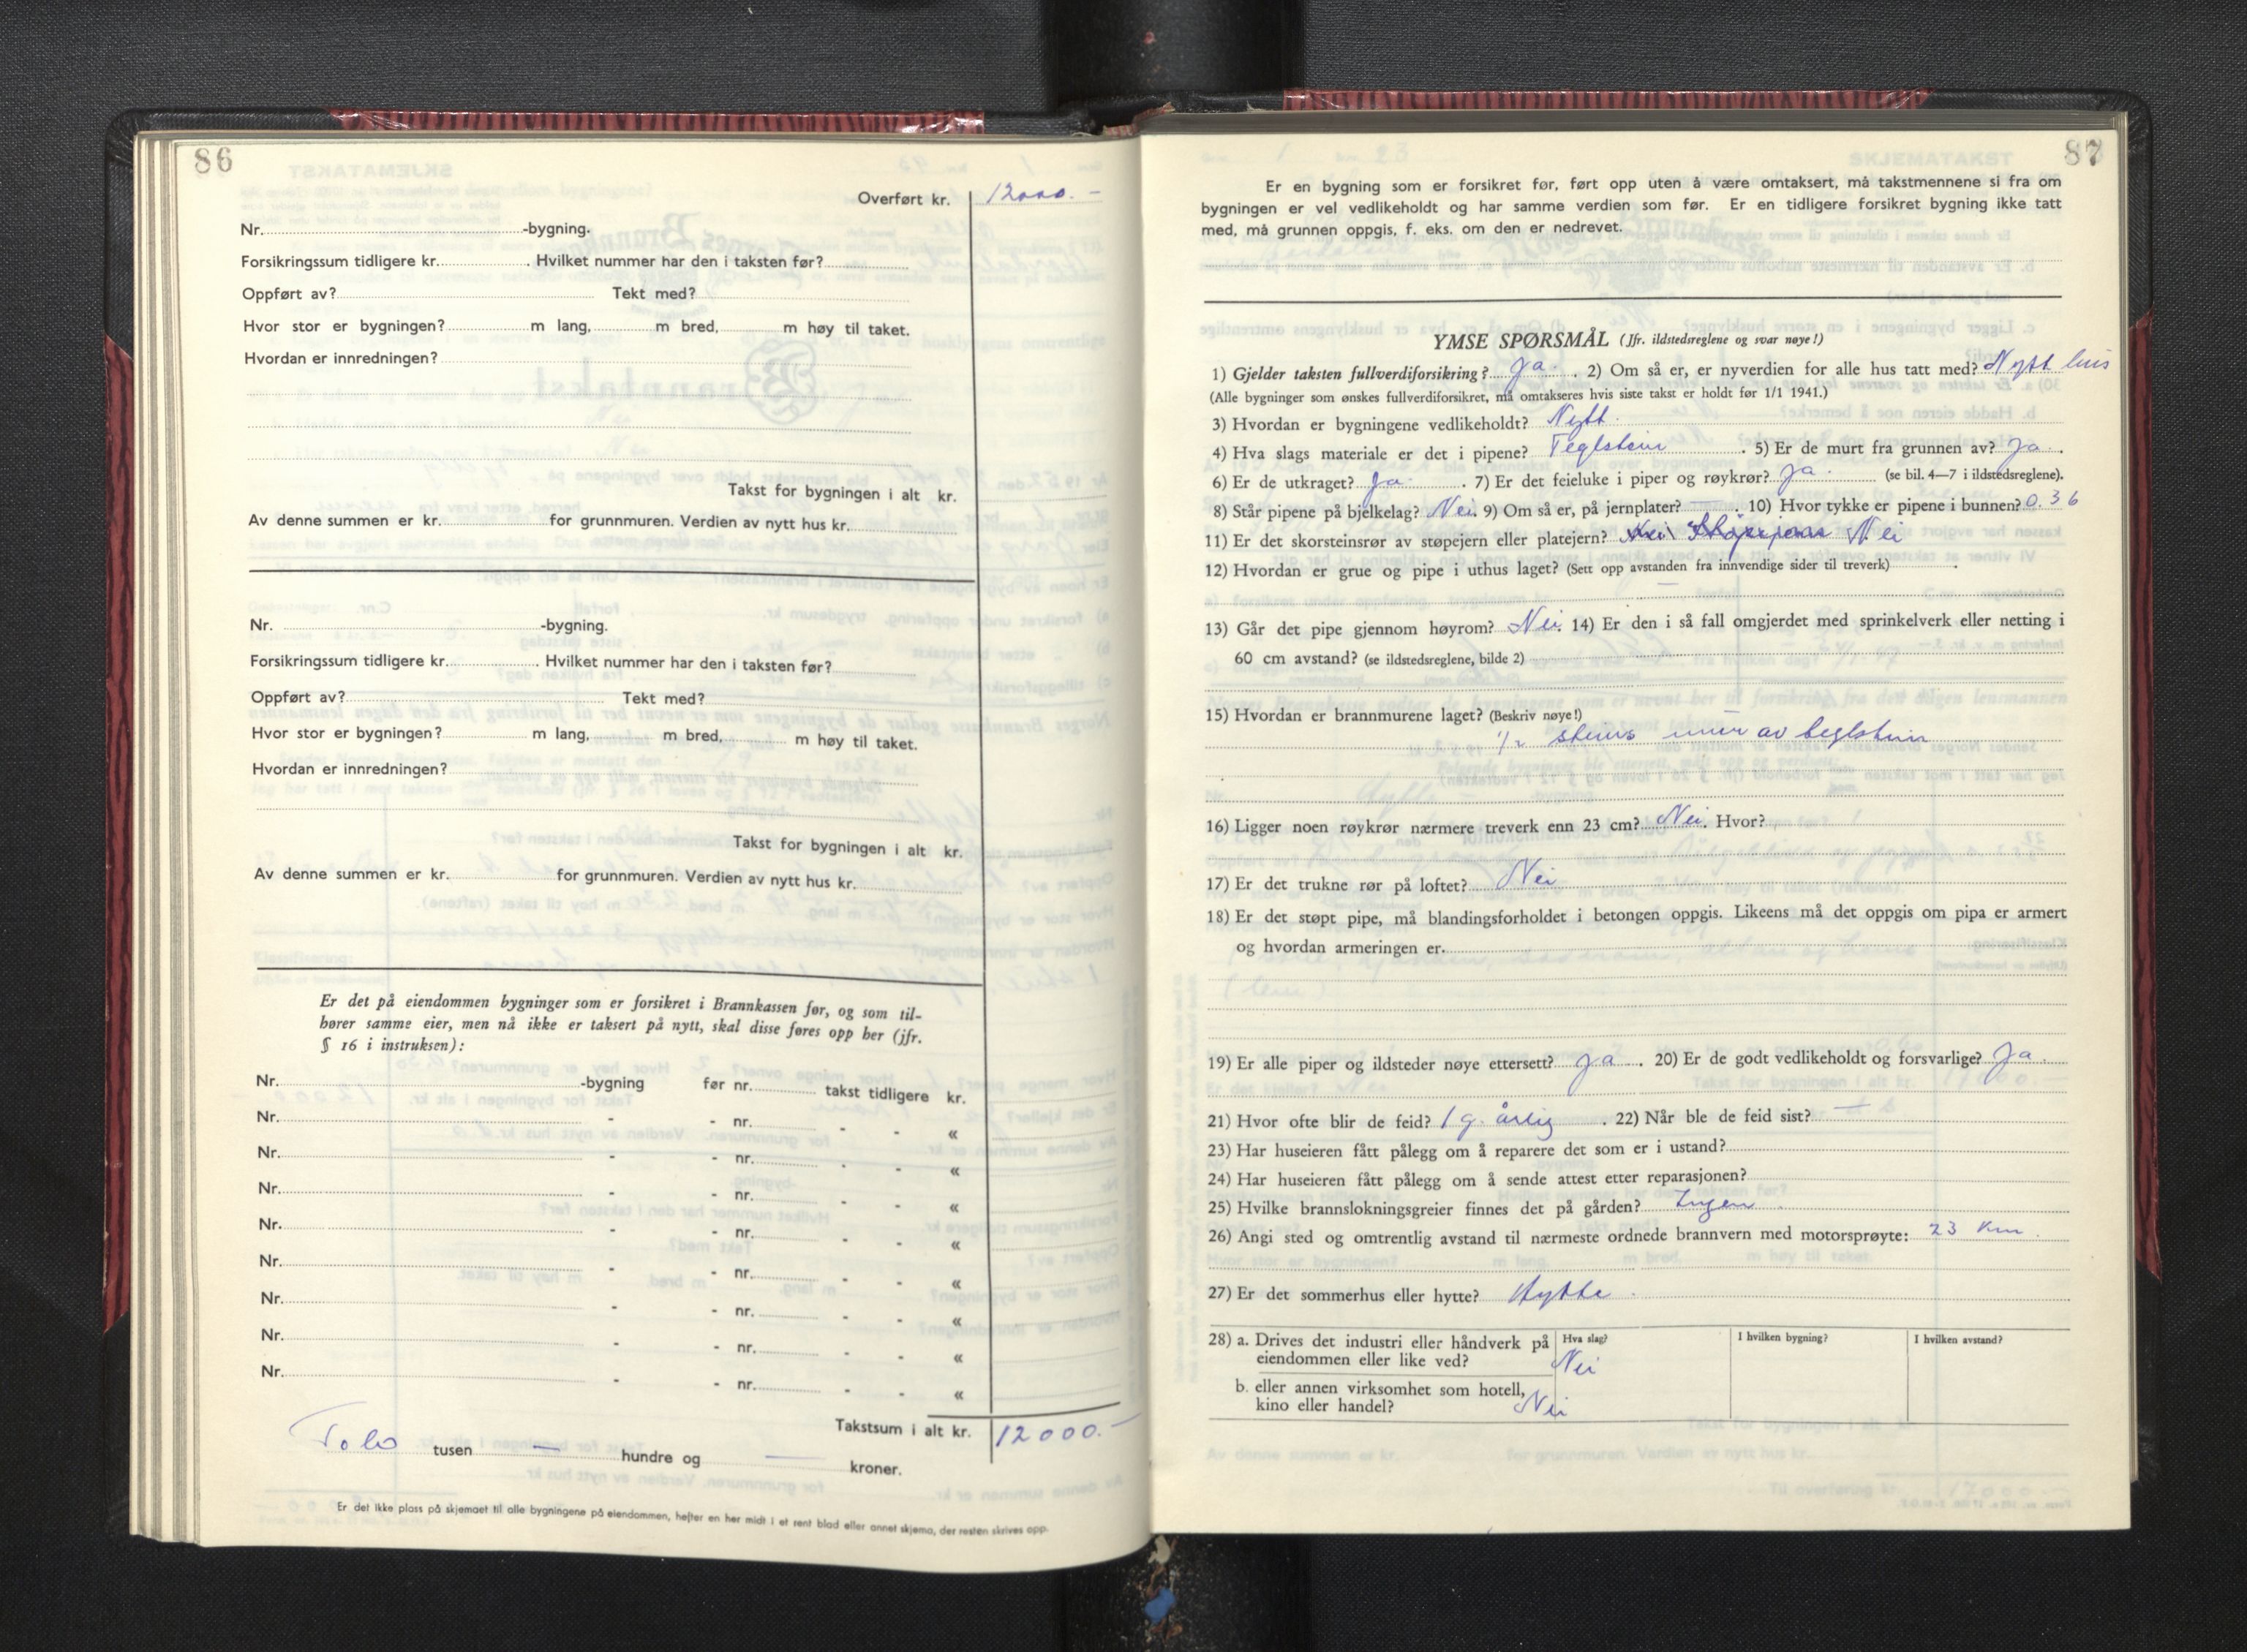 86
Overført kr. 12000.-
Nr. -bygning.
Forsikringssum tidligere kr. . Hvilket nummer har den i taksten før?
Oppført av? Tekt med?
Hvor stor er bygningen? m lang, m bred, m høy til taket.
Hvordan er innredningen?
Takst for bygningen i alt kr.
Av denne summen er kr. for grunnmuren. Verdien av nytt hus kr.
Nr. -bygning.
Forsikringssum tidligere kr. . Hvilket nummer har den i taksten før?
Oppført av? Tekt med?
Hvor stor er bygningen? m lang, m bred, m høy til taket.
Hvordan er innredningen?
Takst for bygningen i alt kr.
Av denne summen er kr. for grunnmuren. Verdien av nytt hus kr.
Er det på eiendommen bygninger som er forsikret i Brannkassen før, og som til-
hører samme eier, men nå ikke er taksert på nytt, skal disse føres opp her (jfr.
§ 16 i instruksen):
Nr. -bygning før nr. takst tidligere kr.
Nr. - - nr. - - «
Nr. - - nr. - - «
Nr. - - nr. - - «
Nr. - - nr. - - «
Nr. - - nr. - - «
Nr. - - nr. - - «
Nr. - - nr. - - «
Nr. - - nr. - - «
Takstsum i alt kr. 12000.-
Tolv tusen — hundre og — kroner.
Er det ikke plass på skjemaet til alle bygningene på eiendommen, hefter en her midt i et rent blad eller annet skjema, der resten skrives opp.
87
Er en bygning som er forsikret før, ført opp uten å være omtaksert, må takstmennene si fra om
bygningen er vel vedlikeholdt og har samme verdien som før. Er en tidligere forsikret bygning ikke tatt
med, må grunnen oppgis, f. eks. om den er nedrevet.
YMSE SPØRSMÅL (Jfr. ildstedsreglene og svar nøye!)
1) Gjelder taksten fullverdiforsikring? Ja. . 2) Om så er, er nyverdien for alle hus tatt med? Nytt hus
(Alle bygninger som ønskes fullverdiforsikret, må omtakseres hvis siste takst er holdt før 1/1 1941.)
3) Hvordan er bygningene vedlikeholdt? Nytt.
4) Hva slags materiale er det i pipene? Teglstein . 5) Er de murt fra grunnen av? Ja .
6) Er de utkraget? Ja . 7) Er det feieluke i piper og røykrør? Ja. (se bil. 4—7 i ildstedsreglene).
8) Står pipene på bjelkelag? Nei. 9) Om så er, på jernplater? — . 10) Hvor tykke er pipene i bunnen? 0.36
11) Er det skorsteinsrør av støpejern eller platejern? Nei Støpejern Nei
12) Hvordan er grue og pipe i uthus laget? (Sett opp avstanden fra innvendige sider til treverk) .
—
13) Går det pipe gjennom høyrom? Nei. 14) Er den i så fall omgjerdet med sprinkelverk eller netting i
60 cm avstand? (se ildstedsreglene, bilde 2)
15) Hvordan er brannmurene laget? (Beskriv nøye!)
1/2 steins mur av teglstein
16) Ligger noen røykrør nærmere treverk enn 23 cm? Nei. Hvor?
17) Er det trukne rør på loftet? Nei
18) Er det støpt pipe, må blandingsforholdet i betongen oppgis. Likeens må det oppgis om pipa er armert
og hvordan armeringen er.
19) Er alle piper og ildsteder nøye ettersett? Ja . 20) Er de godt vedlikeholdt og forsvarlige? Ja.
21) Hvor ofte blir de feid? 1 g. årlig . 22) Når ble de feid sist? —
23) Har huseieren fått pålegg om å reparere det som er i ustand?
24) Har huseieren fått pålegg om å sende attest etter reparasjonen?
25) Hvilke brannslokningsgreier finnes det på gården? Ingen.
26) Angi sted og omtrentlig avstand til nærmeste ordnede brannvern med motorsprøyte: 23 km.
27) Er det sommerhus eller hytte? Hytte.
28) a. Drives det industri eller håndverk på Hva slag? I hvilken bygning? I hvilken avstand?
eiendommen eller like ved? Nei
b. eller annen virksomhet som hotell,
kino eller handel? Nei